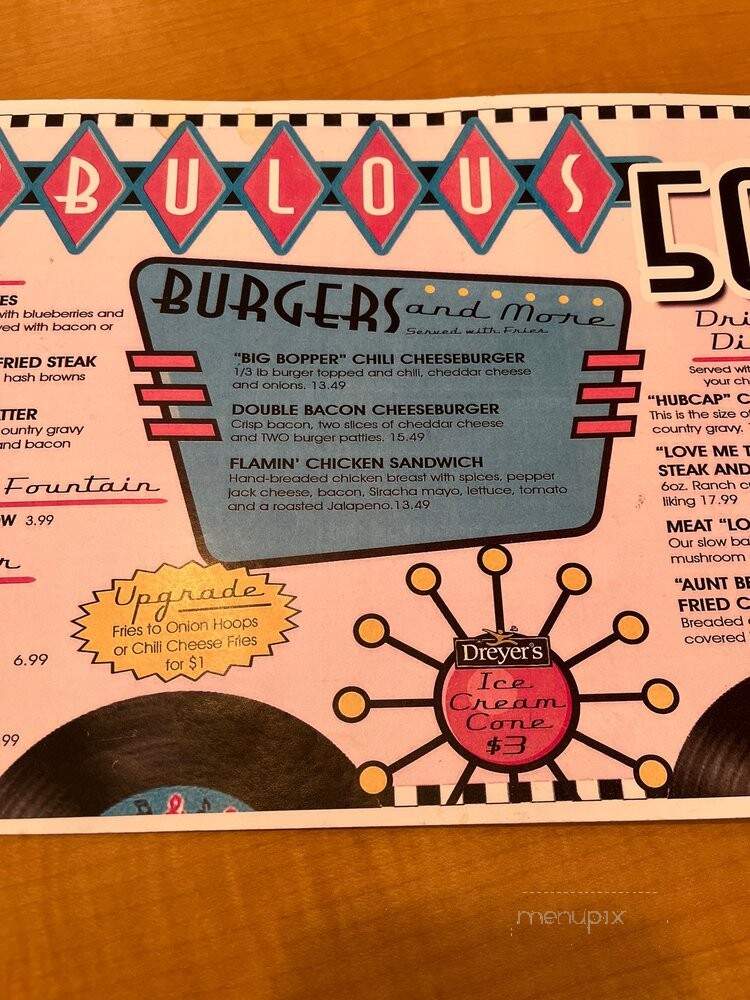 BULOUS
50
ES
with blueberries and
ved with bacon or
FRIED STEAK
hash browns
TTER
ountry gravy
and bacon
Fountain
OW 3.99
r
6.99
.99
BURGERS and More
Served with Fries
"BIG BOPPER" CHILI CHEESEBURGER
1/3 lb burger topped and chili, cheddar cheese
and onions. 13.49
DOUBLE BACON CHEESEBURGER
Crisp bacon, two slices of cheddar cheese
and TWO burger patties. 15.49
FLAMIN' CHICKEN SANDWICH
Hand-breaded chicken breast with spices, pepper
jack cheese, bacon, Siracha mayo, lettuce, tomato
and a roasted Jalapeno.13.49
Upgrade
Fries to Onion Hoops
or Chili Cheese Fries
for $1
Dreyer's
Ice
Cream
Cone
$3
Dri
Di
Served wit
your ch
"HUBCAP" C
This is the size o
country gravy.
"LOVE ME T
STEAK AND
6oz. Ranch cu
liking 17.99
MEAT "LO
Our slow ba
mushroom
"AUNT BE
FRIED C
Breaded
covered
menupix